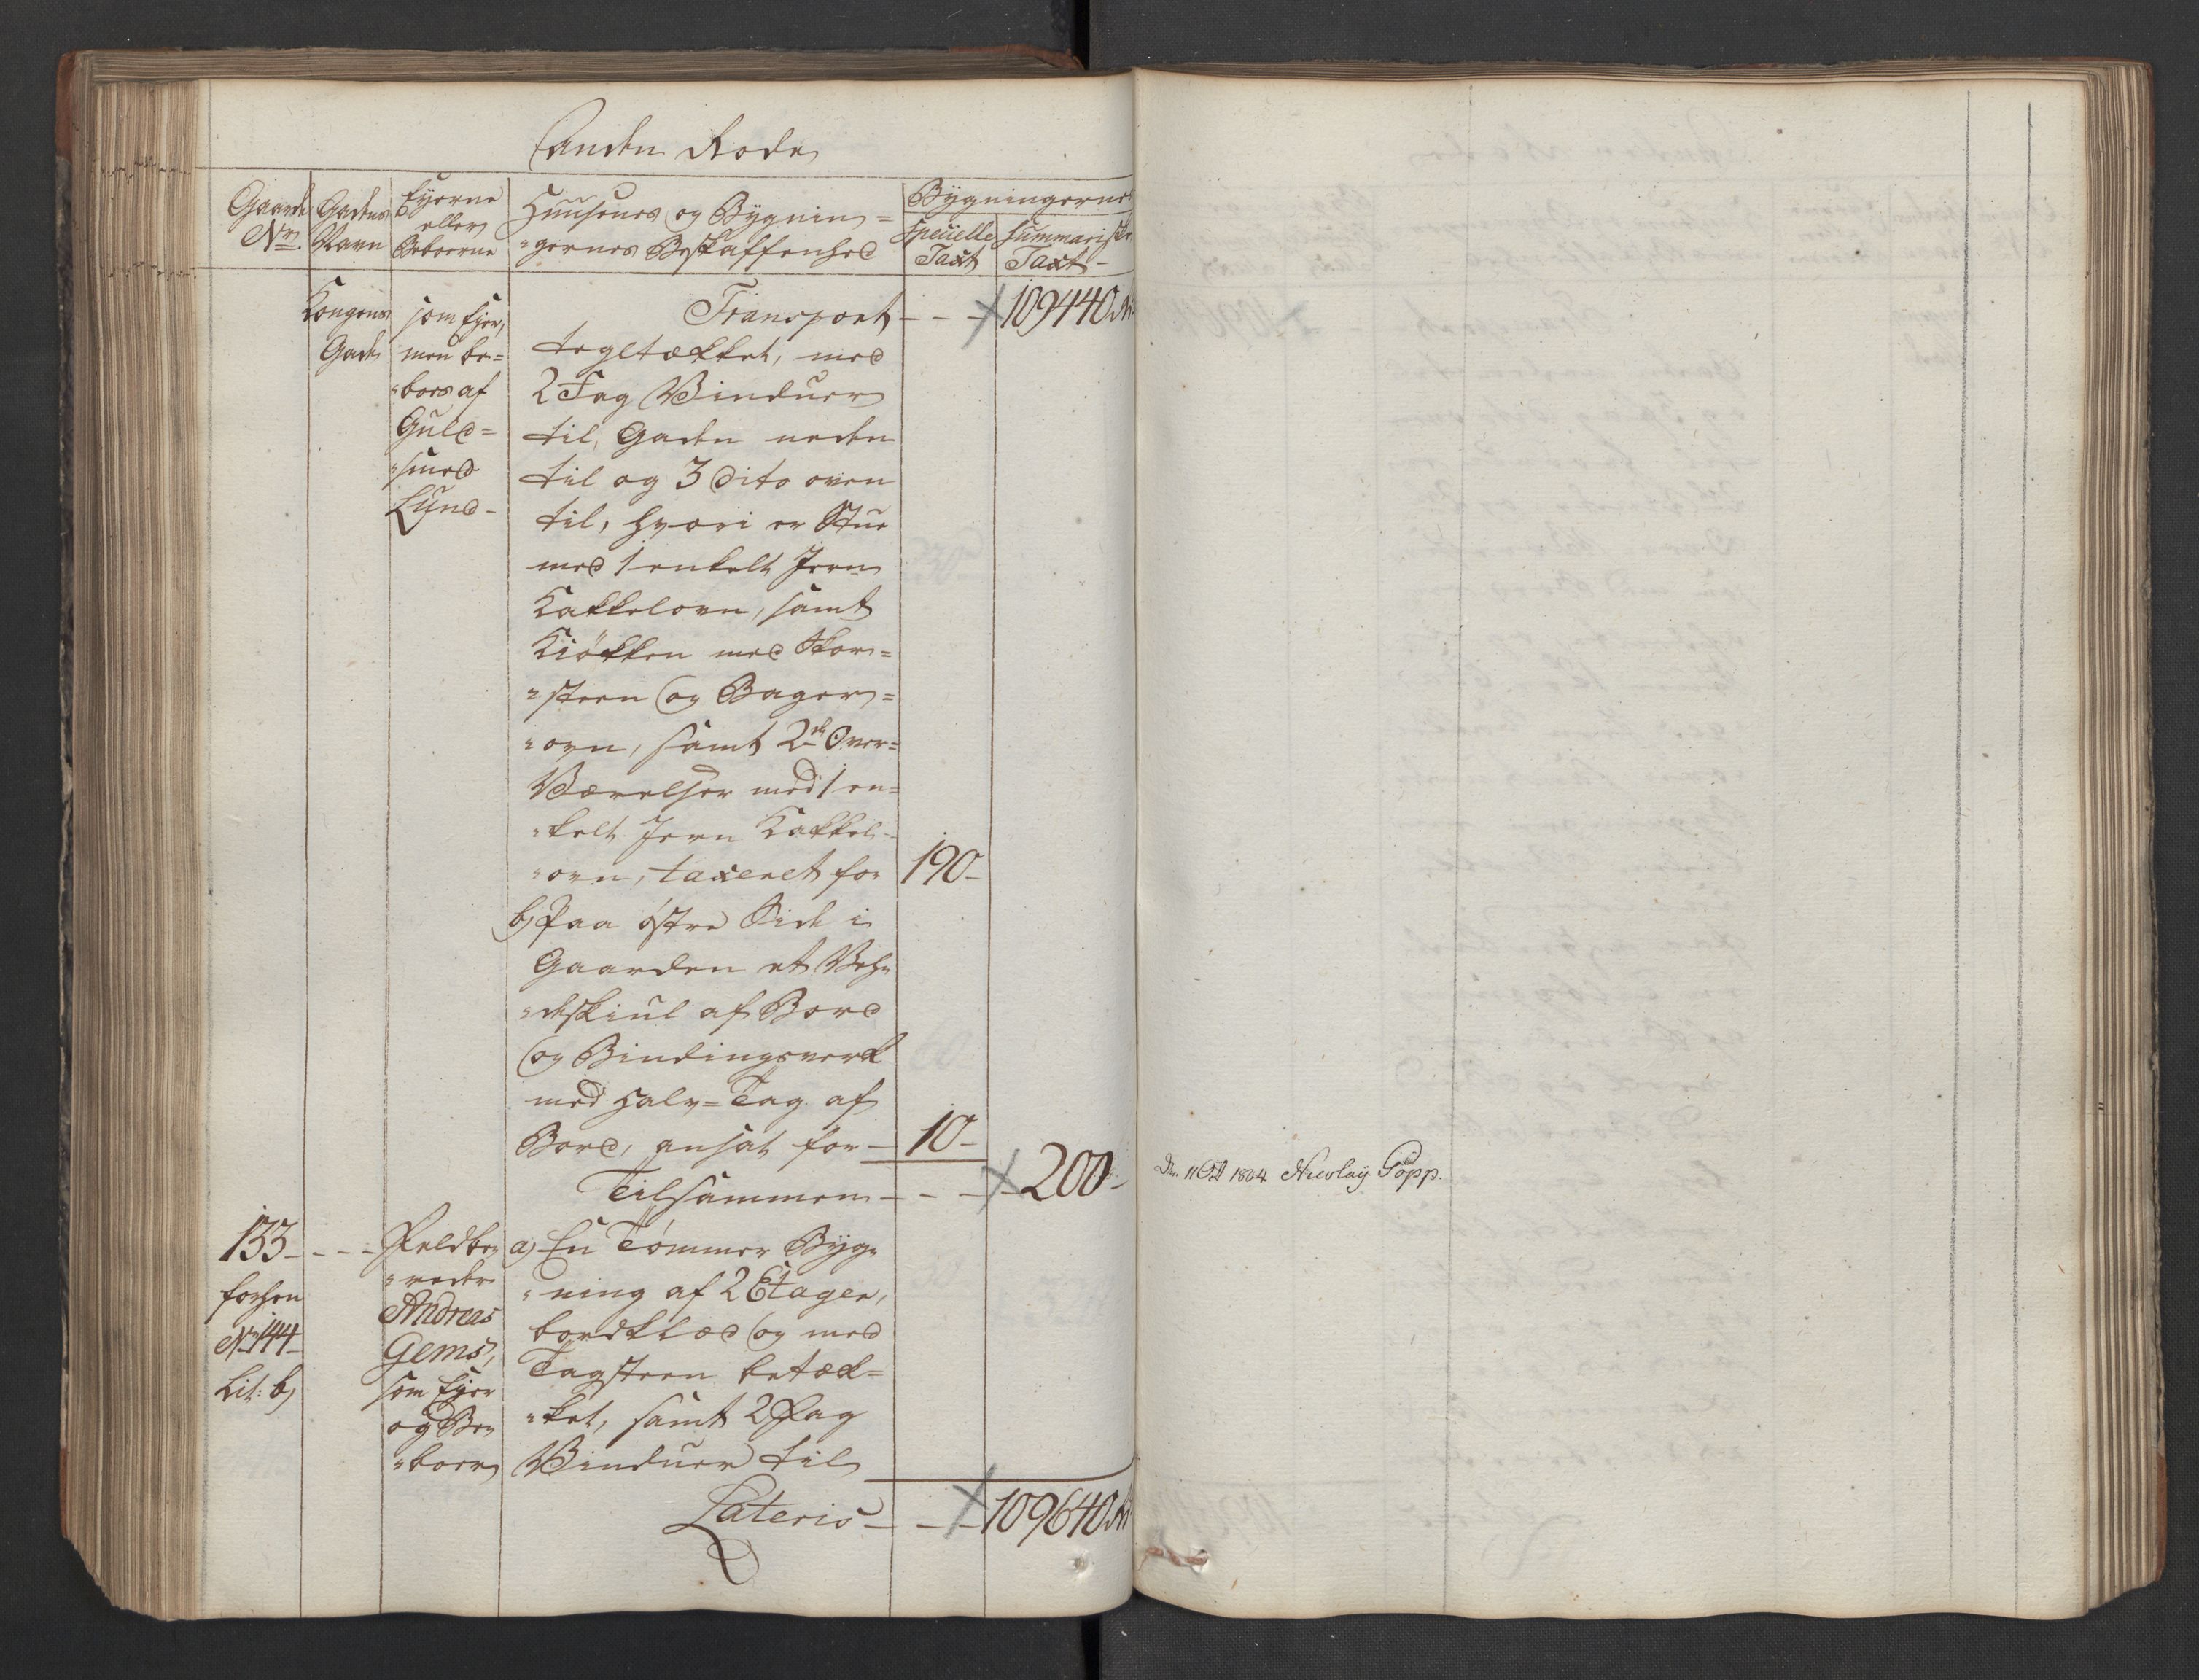 Anden Rode
Gaarde No.
Gadens Navn
Eyerne eller Beboerne
Huusenes og Bygnin=
"gernes Beskaffenhed
Bygningernes
specielle Taxt
summariske Taxt
Kongens
Gade
som Eyer,
men be=
"boes af
Guld=
"smed
Lund
Transport - - - 109440 Rd
tegltækket, med
2 Fag Vinduer
til Gaden neden
til og 3 dito oven
til, hvori er Stue
med 1 enkelt Jern
Kakkelovn, samt
Kiökken med Skor=
"steen og Bager=
"ovn, samt 2de Over=
Værelser med 1 en=
"kelt Jern Kakkel=
"ovn, taxeret for 190-
b) Paa östre Side i
Gaarden et Veh=
"deskiul af Bord
og Bindingsverk
med Halv=Tag af
Bord, ansat for - 10-
Tilsammen - - - 200-
133 - - -
forhen
No 144
Lit: b)
Feldbe=
"reder
Andreas
Gems,
som Eyer
og Be=
"boer
a) En Tömmer Byg=
"ning af 2 Etager,
bordklæd og med
Tagsteen betæk=
"ket, samt 2 Fag
Vinduer til
Lateris - - - 109640 Rd
Den 11 Oct 1804 Nicolay Göpp.